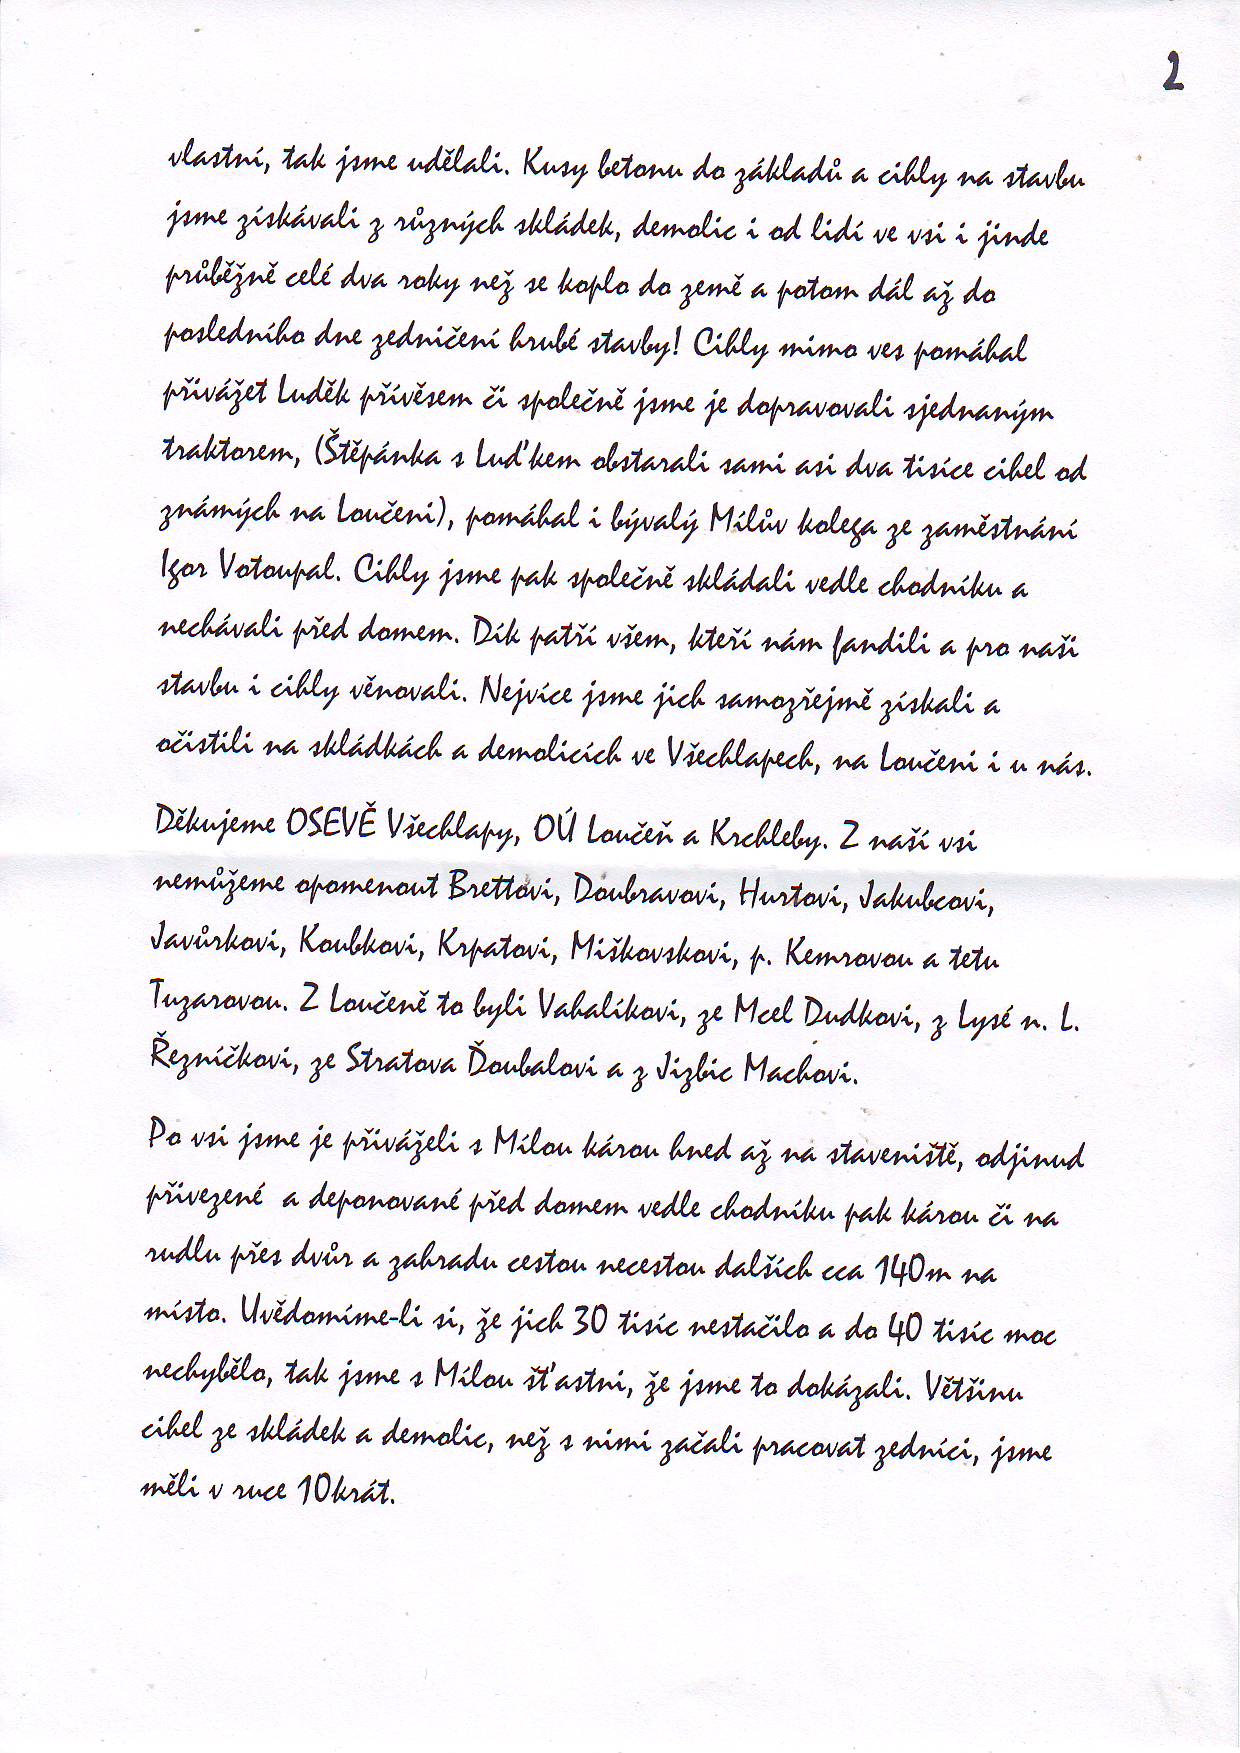 2
vlastní, tak jsme udělali. Kusy betonu do základů a cihly na stavbu
jsme získávali z různých skládek, demolic i od lidí ve vsi i jinde
průběžně celé dva roky než se koplo do země a potom dál až do
posledního dne zedničení hrubé stavby! Cihly mimo ves pomáhal
přivážet Luděk přívěsem či společně jsme je dopravovali sjednaným
traktorem, (Štěpánka s Luďkem obstarali sami asi dva tisíce cihel od
známých na Loučeni), pomáhal i bývalý Mílův kolega ze zaměstnání
Igor Votoupal. Cihly jsme pak společně skládali vedle chodníku a
nechávali před domem. Dík patří všem, kteří nám fandili a pro naši
stavbu i cihly věnovali. Nejvíce jsme jich samozřejmě získali a
očistili na skládkách a demolicích ve Všechlapech, na Loučeni i u nás.
Děkujeme OSEVĚ Všechlapy, OÚ Loučeň a Krchleby. Z naší vsi
nemůžeme opomenout Brettovi, Doubravovi, Hurtovi, Jakubcovi,
Javůrkovi, Koubkovi, Krpatovi, Miškovskovi, p. Kemrovou a tetu
Tuzarovou. Z Loučeně to byli Vahalíkovi, ze Mcel Dudkovi, z Lysé n. L.
Řezníčkovi, ze Stratova Ďoubalovi a z Jizbic Machovi.
Po vsi jsme je přiváželi s Mílou károu hned až na staveniště, odjinud
přivezené a deponované před domem vedle chodníku pak károu či na
rudlu přes dvůr a zahradu cestou necestou dalších cca 140m na
místo. Uvědomíme-li si, že jich 30 tisíc nestačilo a do 40 tisíc moc
nechybělo, tak jsme s Mílou šťastni, že jsme to dokázali. Většinu
cihel ze skládek a demolic, než s nimi začali pracovat zedníci, jsme
měli v ruce 10krát.